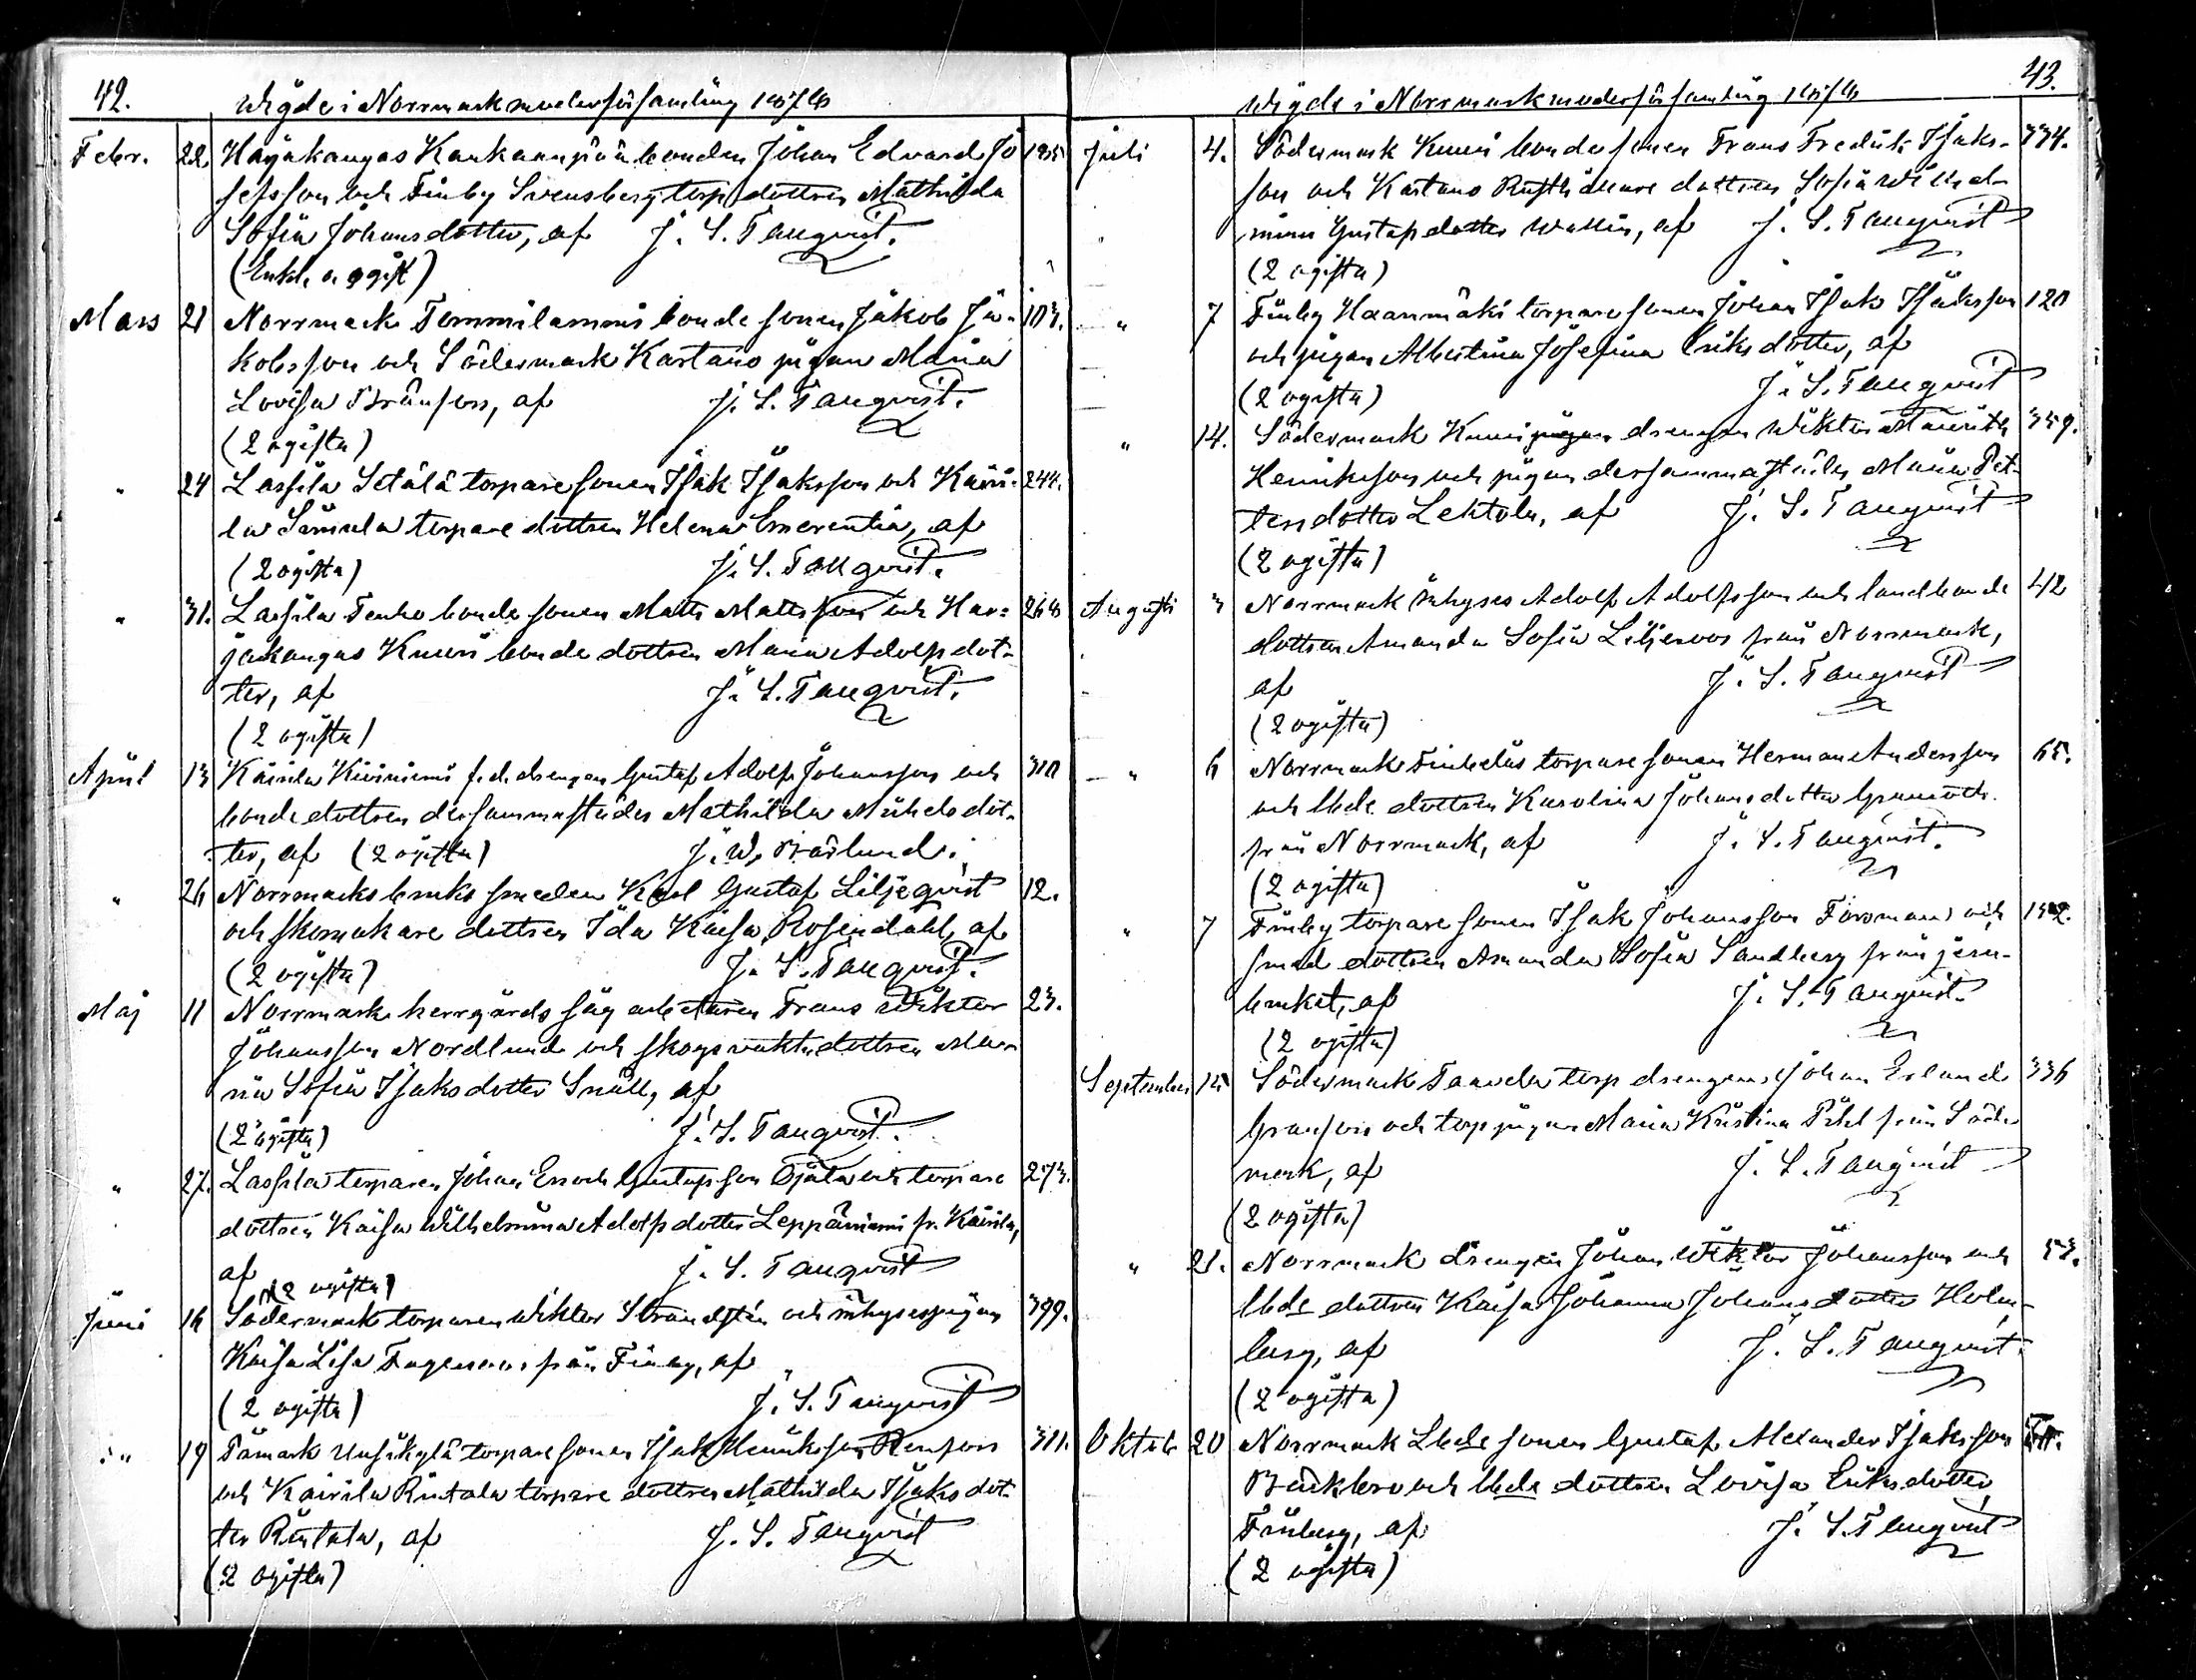 42.
Wigde i Norrmark moderförsamling 1876
Febr. 22. Harjakangas Kankaanpää bonden Johan Edvard Jo 185
sefsson och Finby Svensberg torp dottren Mathilda
Sofia Johansdotter, af J. S. Tanqvist.
(Enkl. o. ogift)
Mars 21 Norrmark Tommilammi bonde sonen Jakob Ja- 103.
kobsson och Södermark Kartano pigan Maria
Lovisa Brånfors, af J. S. Tanqvist.
(2 ogifta)
" 24 Lassila Setälä torpare sonen Isak Isaksson och Kairi- 244.
la torpare dottren Helena Emerentia, af
(2 ogifta) J. S. Tanqvist.
" 31. Lassila Tenho bonde sonen Matts Mattsson och Har- 268
jakangas Knuus bonde dottren Maria Adolfsdot-
ter, af J. S. Tanqvist.
(2 ogifta)
April 13 Kairila Kiviniemi f.d. drengen Gustaf Adolf Johansson och 310
bonde dottren dersammastädes Mathilda Mickelsdot-
ter, af (2 ogifta) J. W. Barlund.
" 26 Norrmarks bruks smeden Karl Gustaf Liljeqvist 12.
och skomakare dottren Ida Kaisa Rosendahl, af
(2 ogifta) J. S. Tanqvist.
Maj 11 Norrmarks herrgårds såg arbetaren Frans Wiktor 23.
Johansson Nordlund och skogsvakts dottren Ma-
ria Sofia Isaksdotter Snäll, af
(2 ogifta) J. S. Tanqvist.
" 27. Lassila torparen Johan Enoch Gustafsson Ojala och torpare 273.
dottren Kaisa Wilhelmina Adolfsdotter Leppäniemi fr. Kairila,
af J. S. Tanqvist
(2 ogifta)
Juni 16 Södermark torparen Wiktor Strandsten och inhysespigan 399.
Kaisa Lisa Fagerroos från Finby, af
(2 ogifta) J. S. Tanqvist
" 19 Påmark Uusikylä torpare sonen Isak Henriksson Renfors 311.
och Kairila Rintala torpare dottren Mathilda Isaksdot-
ter Rintala, af J. S. Tanqvist
(2 ogifta)
43.
Wigde i Norrmark moderförsamling 1876
Juli 4. Södermark Knuus bonde sonen Frans Fredrik Isaks- 334.
son och Kartano Rusthållare dottren Sofia Wilhel-
mina Gustafsdotter Wallin, af J. S. Tanqvist
(2 ogifta)
" 7 Finby Haanmäki torpare sonen Johan Isak Isaksson 120
och pigan Albertina Josefina Eriksdotter, af
(2 ogifta) J. S. Tanqvist
" 14. Södermark Knuus drengen Wiktor Maurits 359.
Henriksson och pigan dersammastädes Maria Pet-
tersdotter Lehtola, af J. S. Tanqvist
(2 ogifta)
Augusti 3 Norrmark inhyses Adolf Adolfsson och landbonde 42
dottren Amanda Sofia Liljeroos från Norrmark,
af J. S. Tanqvist
(2 ogifta)
" 6 Norrmark Finkelas torpare sonen Herman Andersson 65.
och lbde dottren Karolina Johansdotter Granroth
från Norrmark, af J. S. Tanqvist.
(2 ogifta)
" 7 Finby torpare sonen Isak Johansson Forsman och 152.
smed dottren Amanda Sofia Sandberg från jern-
bruket, af J. S. Tanqvist.
(2 ogifta)
September 14 Södermark torp drengen Johan Erland 336
Granfors och torp pigan Maria Kristina Pihl från Söder
mark, af J. S. Tanqvist
(2 ogifta)
" 21. Norrmark drengen Johan Wiktor Johansson och 53.
lbde dottren Kaisa Johanna Johansdotter Holm-
berg, af J. S. Tanqvist.
(2 ogifta)
Oktob 20 Norrmark Lbde sonen Gustaf Alexander Isaksson
Backbro och lbde dottren Lovisa Eriksdotter
Friberg, af J. S. Tanqvist
(2 ogifta)